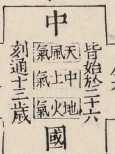 中
皆始於二十六
天中地
風土火
氣氣氣
刻通十三歲
國